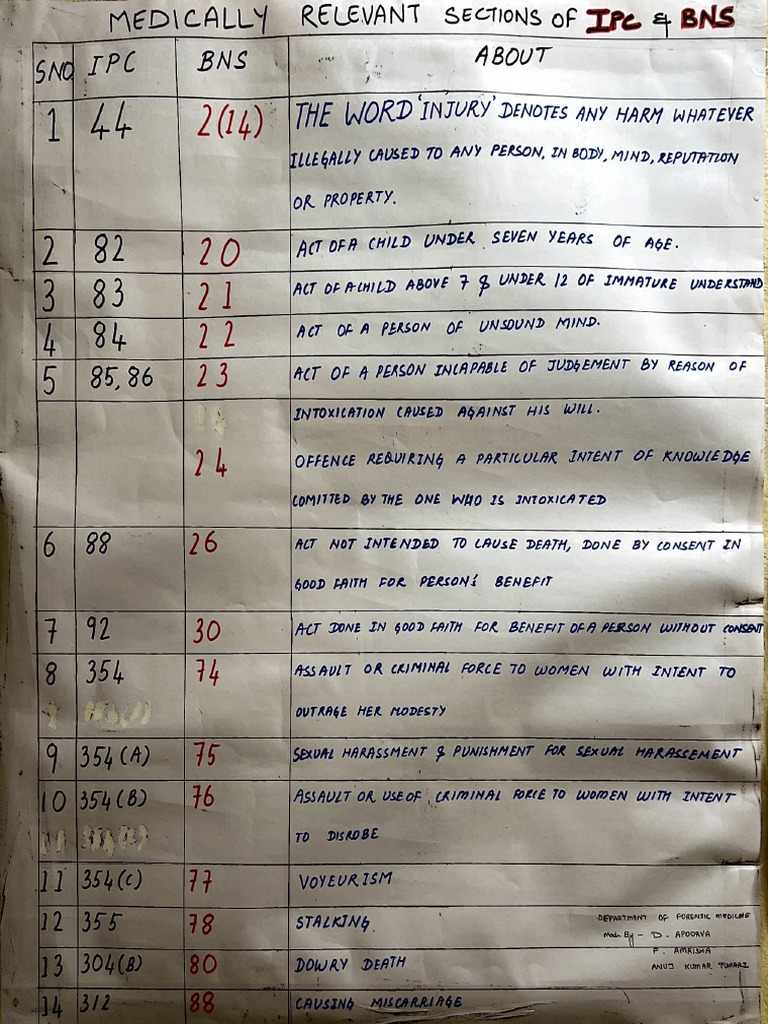 MEDICALLY RELEVANT SECTIONS OF IPC & BNS
SNO IPC BNS ABOUT
1 44 2(14) THE WORD 'INJURY' DENOTES ANY HARM WHATEVER
ILLEGALLY CAUSED TO ANY PERSON, IN BODY, MIND, REPUTATION
OR PROPERTY.
2 82 20 ACT OF A CHILD UNDER SEVEN YEARS OF AGE.
3 83 21 ACT OF A CHILD ABOVE 7 & UNDER 12 OF IMMATURE UNDERSTAND
4 84 22 ACT OF A PERSON OF UNSOUND MIND.
5 85,86 23 ACT OF A PERSON INCAPABLE OF JUDGEMENT BY REASON OF
INTOXICATION CAUSED AGAINST HIS WILL.
24 OFFENCE REQUIRING A PARTICULAR INTENT OF KNOWLEDGE
COMITTED BY THE ONE WHO IS INTOXICATED
6 88 26 ACT NOT INTENDED TO CAUSE DEATH, DONE BY CONSENT IN
GOOD FAITH FOR PERSON'S BENEFIT
7 92 30 ACT DONE IN GOOD FAITH FOR BENEFIT OF A PERSON WITHOUT CONSENT
8 354 74 ASSAULT OR CRIMINAL FORCE TO WOMEN WITH INTENT TO
OUTRAGE HER MODESTY
9 354(A) 75 SEXUAL HARASSMENT & PUNISHMENT FOR SEXUAL HARASSEMENT
10 354(B) 76 ASSAULT OR USE OF CRIMINAL FORCE TO WOMEN WITH INTENT
TO DISROBE
11 354(C) 77 VOYEURISM
12 355 78 STALKING
13 304(B) 80 DOWRY DEATH
14 312 88 CAUSING MISCARRIAGE
DEPARTMENT OF FORENSIC MEDICINE
Made By - D. APOORVA
P. AMRISHA
ANUJ KUMAR TIWARI